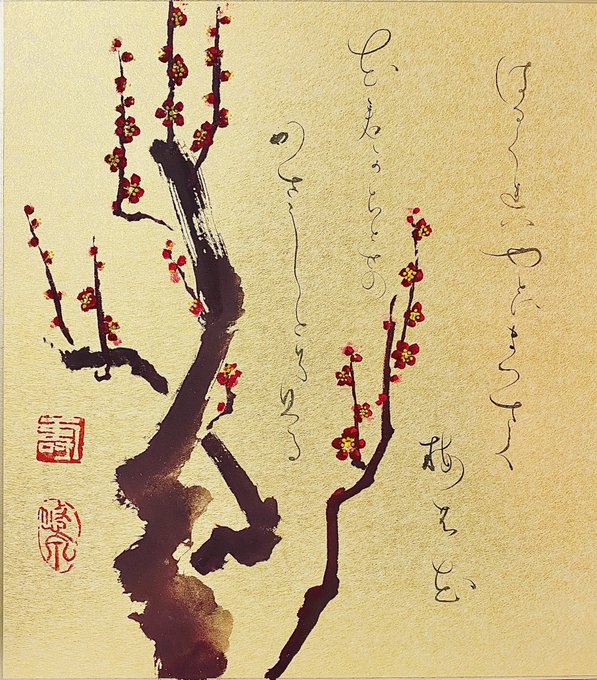 はるくれはやとにまつさく
梅の花
君かちとせの
かさしとそ見る
壽